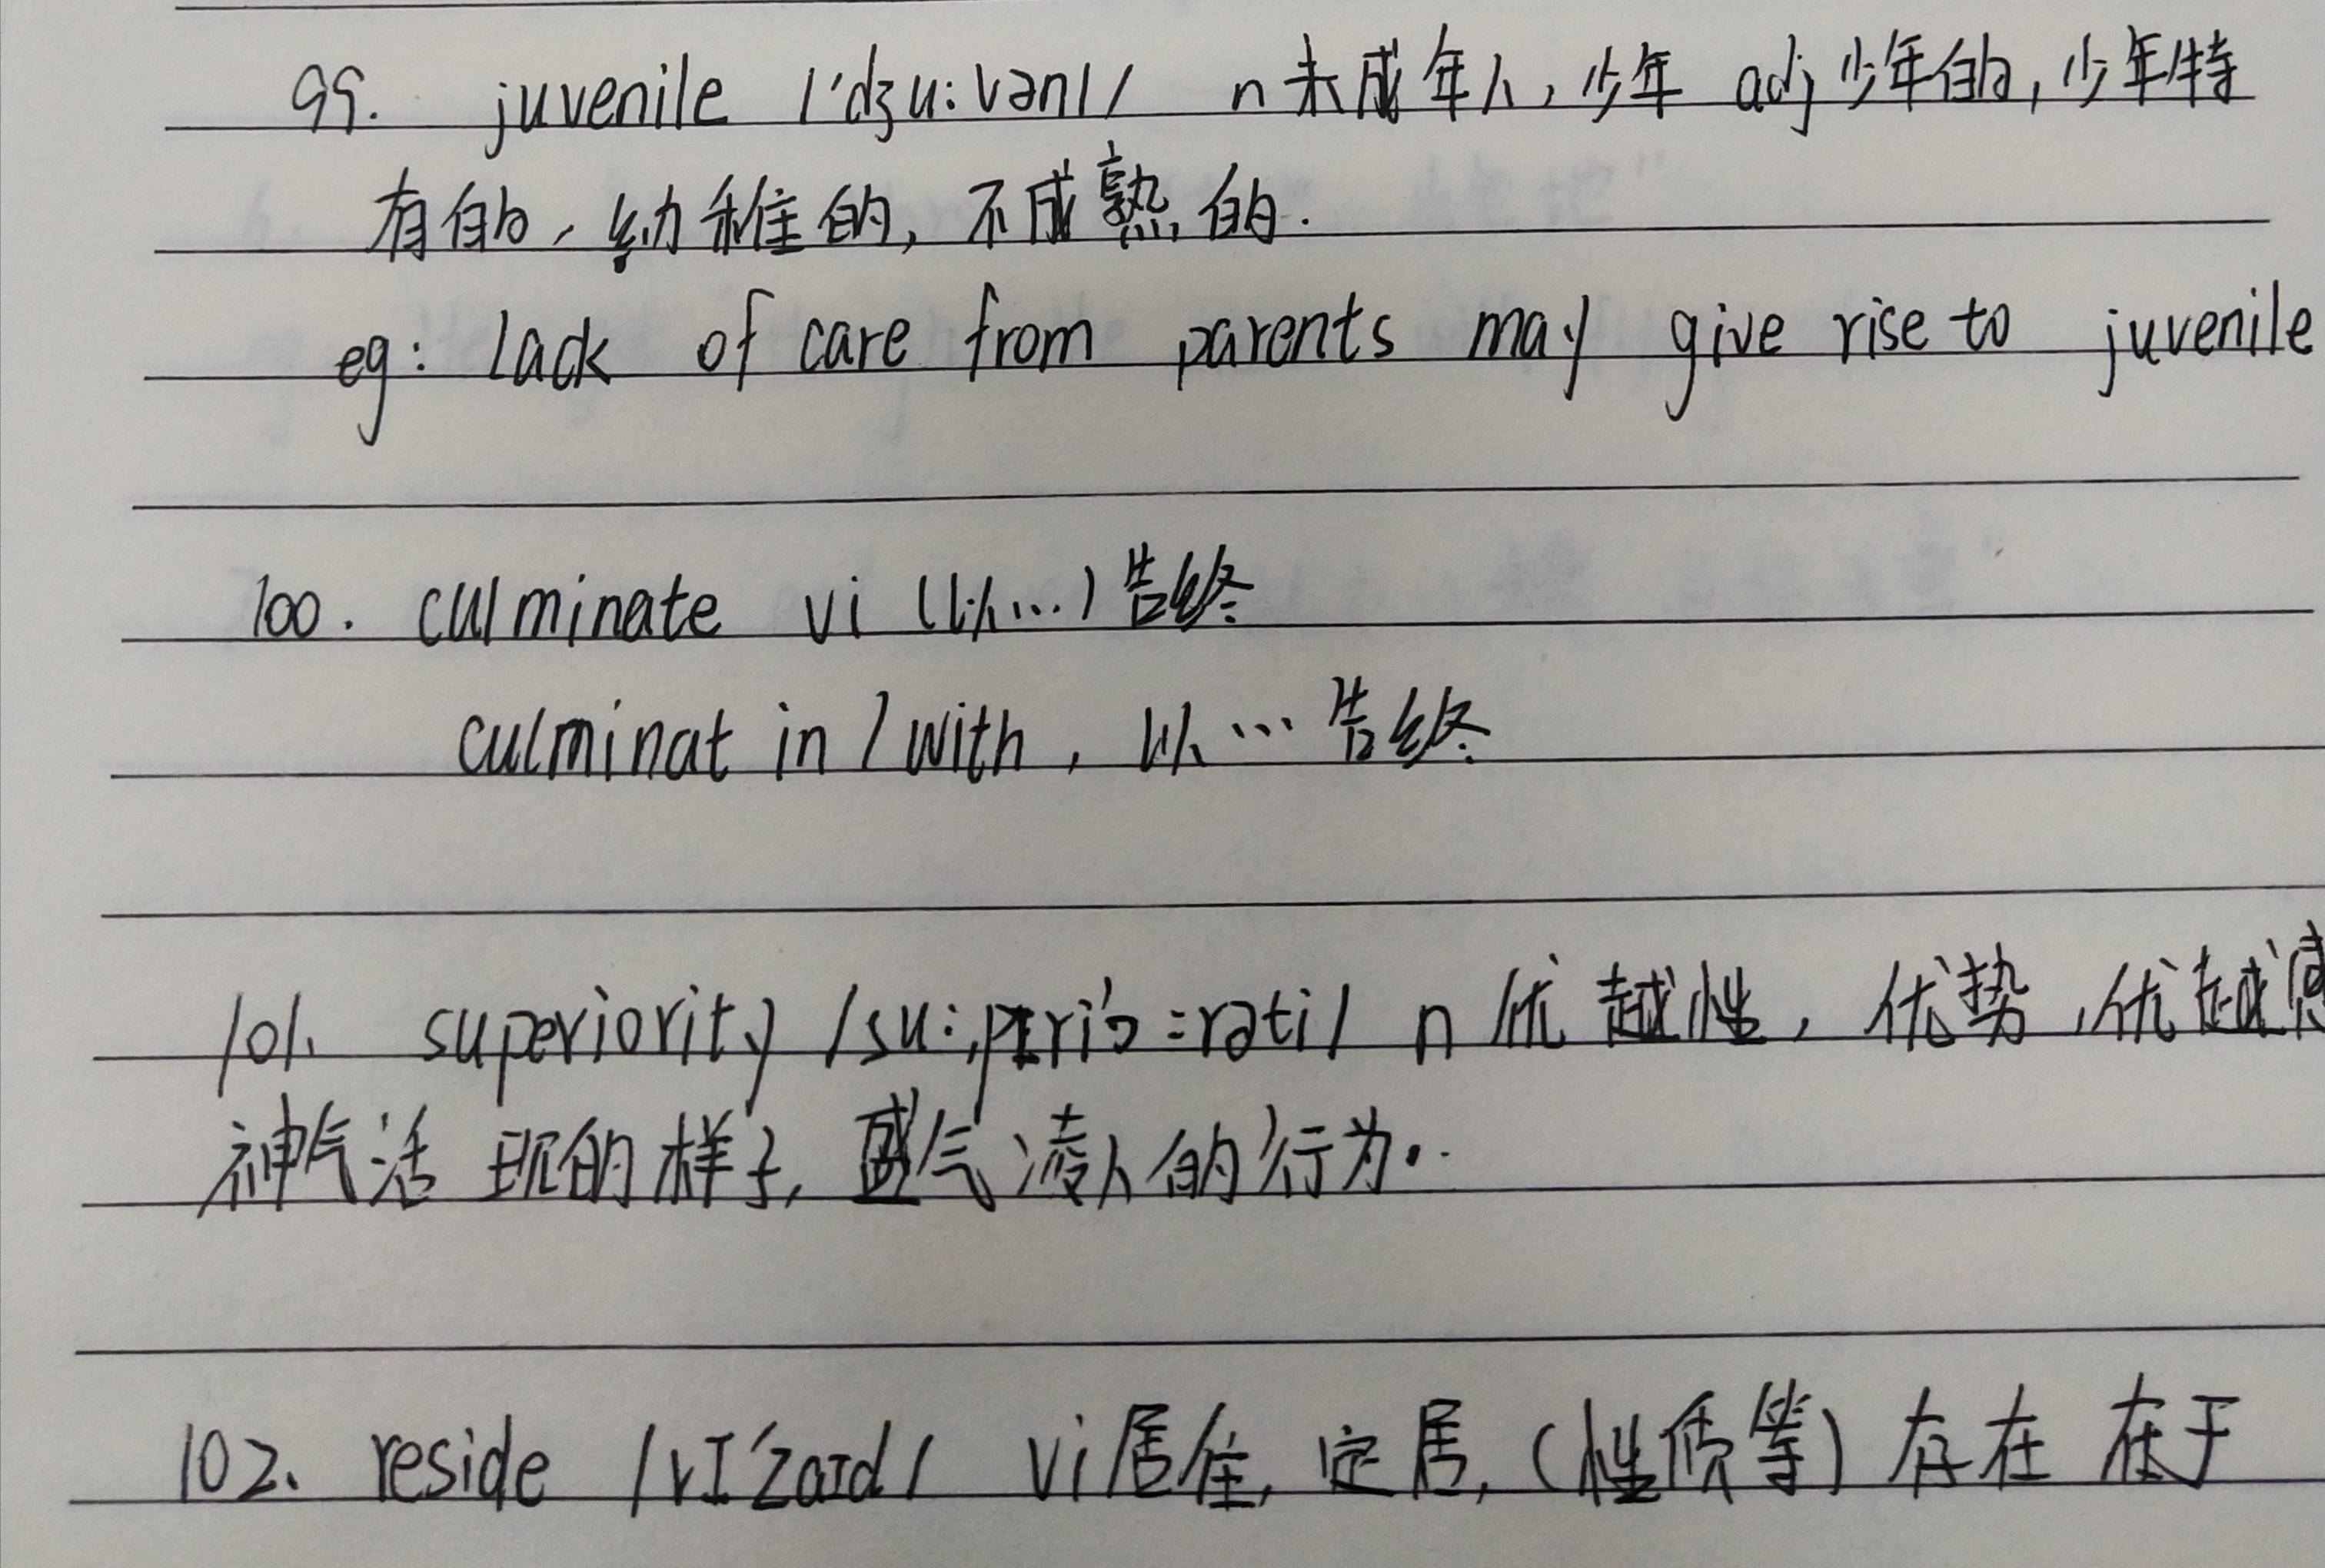 99. juvenile /'dʒu:vənl/ n 未成年人，少年 adj 少年的，少年特
有的，幼稚的，不成熟的.
eg: lack of care from parents may give rise to juvenile
100. culminate vi (以...) 告终
culminat in / with , 以…告终
101. superiority /su:,pɪri'ɔ:rəti/ n 优越性，优势，优越感
神气活现的样子，盛气凌人的行为.
102. reside /rɪ'zaɪd/ vi 居住, 定居, (性质等) 存在 在于